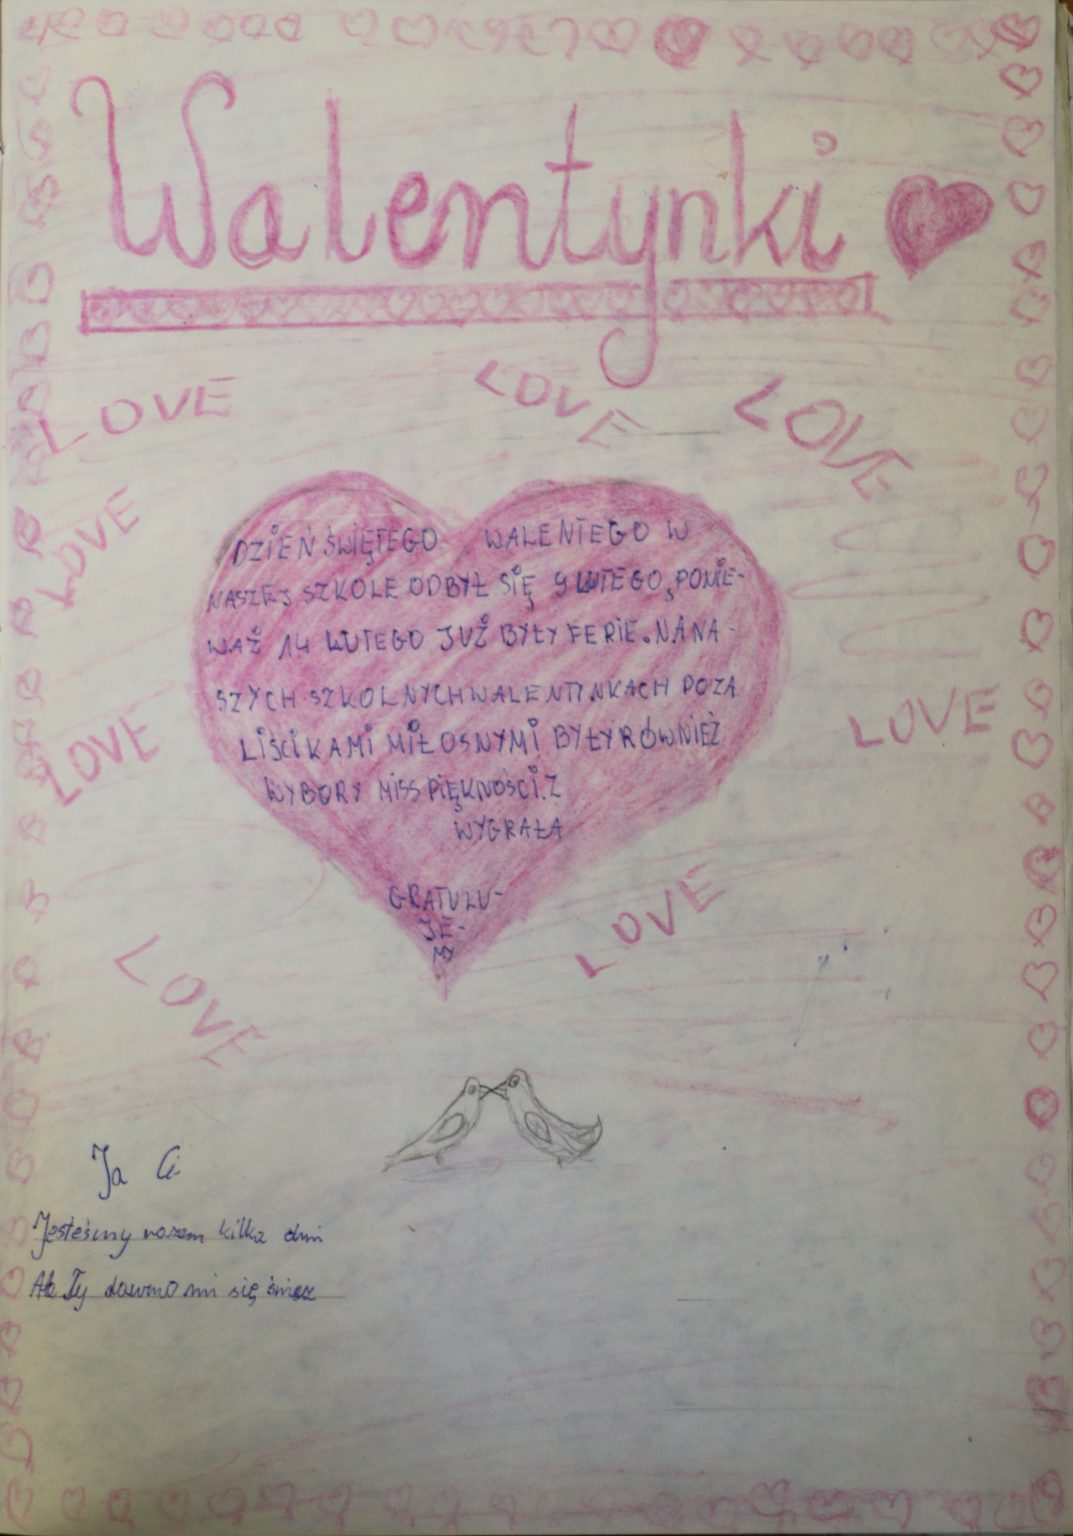 Walentynki
LOVE
LOVE
LOVE
LOVE
DZIEŃ ŚWIĘTEGO WALENTEGO W
NASZEJ SZKOLE ODBYŁ SIĘ 9 LUTEGO, PONIE-
WAŻ 14 LUTEGO JUŻ BYŁY FERIE. NA NA-
SZYCH SZKOLNYCH WALENTYNKACH POZA
LIŚCIKAMI MIŁOSNYMI BYŁY RÓWNIEŻ
WYBORY MISS PIĘKNOŚCI. Z
WYGRAŁA
GRATULU-
JE-
MY
LOVE
LOVE
LOVE
LOVE
Ja Ci
Jesteśmy razem kilka dni
Ale Ty dawno mi się śnisz